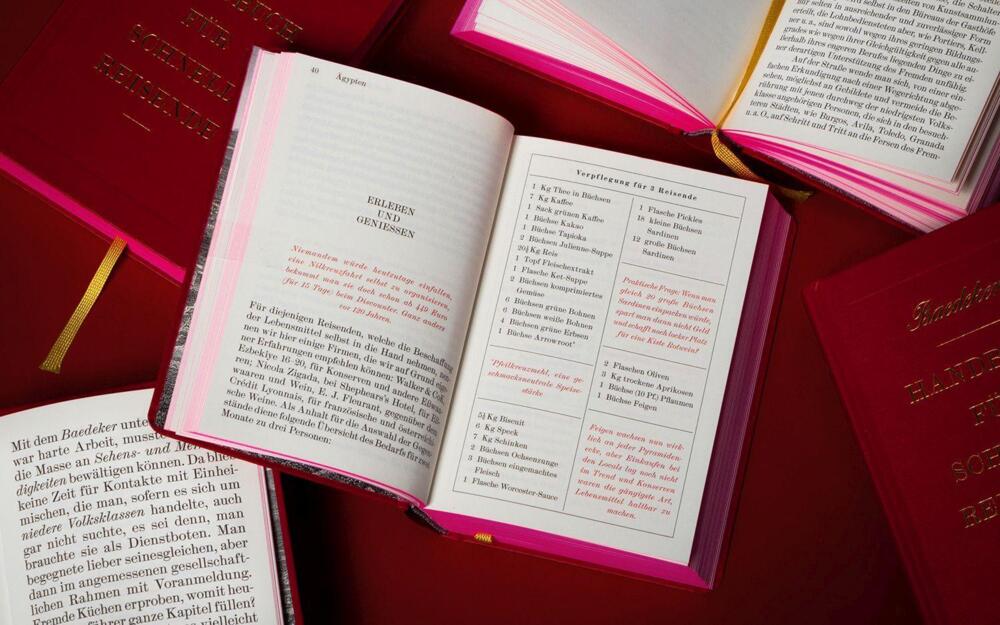 BUCH
FÜR
SCHNELL
REISENDE
40 Ägypten
ERLEBEN
UND
GENIESSEN
Niemandem würde heutzutage einfallen,
eine Nilkreuzfahrt selbst zu organisieren,
bekommt man sie doch schon ab 449 Euro
(für 15 Tage) beim Discounter. Ganz anders
vor 120 Jahren.
Für diejenigen Reisenden, welche die Beschaffung
der Lebensmittel selbst in die Hand nehmen, nen-
nen wir hier einige Firmen, die wir auf Grund eige-
ner Erfahrung empfehlen können: Walker & Co.,
Ezbekiye 16-20, für Konserven und andere Eßwa-
ren; Nicola Zigada, bei Shephears's Hotel, für Eß-
waaren und Wein, E. J. Fleurant, gegenüber dem
Crédit Lyonnais, für französische und österreichi-
sche Weine. Als Anhalt für die Auswahl der Gegen-
stände diene folgende Übersicht des Bedarfs für zwei
Monate zu drei Personen:
Verpflegung für 3 Reisende
1 Kg Thee in Büchsen
7 Kg Kaffee
1 Sack grünen Kaffee
1 Büchse Kakao
1 Büchse Tapioka
2 Büchsen Julienne-Suppe
20½ Kg Reis
1 Topf Fleischextrakt
1 Flasche Ket-Suppe
2 Büchsen komprimiertes
Gemüse
6 Büchsen grüne Bohnen
6 Büchsen weiße Bohnen
4 Büchsen grüne Erbsen
1 Büchse Arrowroot*
*Pfeilkreuzmehl, eine ge-
schmacksneutrale Speise-
stärke
5½ Kg Biscuit
6 Kg Speck
7 Kg Schinken
2 Büchsen Ochsenzunge
3 Büchsen eingemachtes
Fleisch
1 Flasche Worcester-Sauce
1 Flasche Pickles
18 kleine Büchsen
Sardinen
12 große Büchsen
Sardinen
Praktische Frage: Wenn man
gleich 20 große Büchsen
Sardinen einpacken würde,
spart man dann nicht Geld
und schafft noch locker Platz
für eine Kiste Rotwein?
2 Flaschen Oliven
3 Kg trockene Aprikosen
1 Büchse (10 Pf.) Pflaumen
1 Büchse Feigen
Feigen wachsen nun wirk-
lich an jeder Pyramiden-
ecke, aber Einkaufen bei
den Locals lag noch nicht
im Trend und Konserven
waren die gängigste Art,
Lebensmittel haltbar zu
machen.
selbst in den Büreaus der Gasthöfe
nur selten in ausreichender und zuverlässiger Form
erteilt, die Lohnbediensteten aber, wie Portiers, Kell-
ner u. a., sind sowohl wegen ihres geringen Bildungs-
grades wie wegen ihrer Gleichgültigkeit gegen alle an-
ßerhalb ihres engeren Berufes liegenden Dinge zu ei-
ner derartigen Unterstützung des Fremden unfähig.
Auf der Straße wende man sich, von einer ein-
fachen Erkundigung nach einer Wegerichtung abge-
sehen, möglichst an Gebildete und vermeide die Be-
rührung mit jenen durchweg der niedrigsten Volks-
klasse angehörigen Personen, die sich in den besuch-
teren Städten, wie Burgos, Ávila, Toledo, Granada
u. a. O., auf Schritt und Tritt an die Fersen des Frem-
Mit dem Baedeker unte
war harte Arbeit, musste
die Masse an Sehens- und Mer
digkeiten bewältigen können. Da blieb
keine Zeit für Kontakte mit Einhei-
mischen, die man, sofern es sich um
niedere Volksklassen handelte, auch
gar nicht suchte, es sei denn, man
brauchte sie als Dienstboten. Man
begegnete lieber seinesgleichen, aber
dann im angemessenen gesellschaft-
lichen Rahmen mit Voranmeldung.
Fremde Küchen erproben, womit heu-
führer ganze Kapitel füllen?
Baedeker
HAND
FÜ
SCH
RE